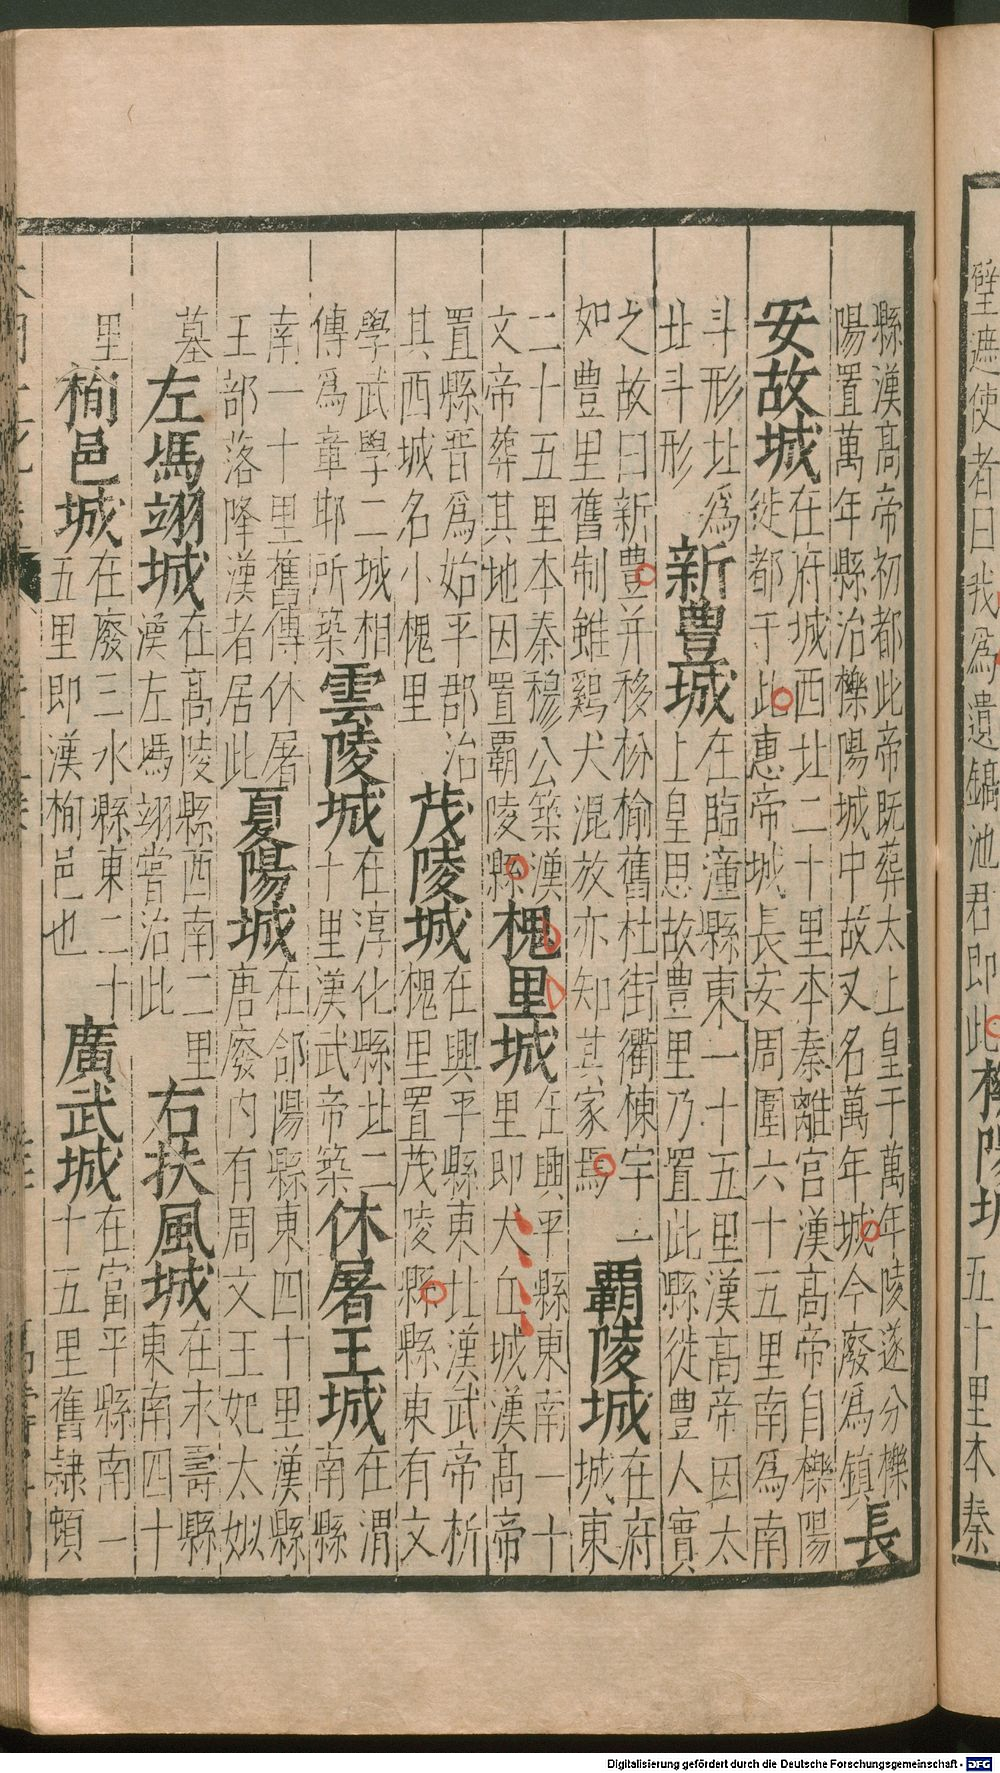 璧遮使者曰我為遺鎬池君即此
櫟陽城
五十里本秦
縣漢高帝初都此帝既葬太上皇于萬年陵遂分櫟
陽置萬年縣治櫟陽城中故又名萬年城今廢為鎮
長
安故城
在府城西北二十里本秦離宮漢高帝自櫟陽
徙都于此惠帝城長安周圍六十五里南為南
斗形北為
北斗形
新豐城
在臨潼縣東一十五里漢高帝因太
上皇思故豐里乃置此縣徙豐人實
之故曰新豐并移枌榆舊杜街衢棟宇一
如豐里舊制雖鷄犬混放亦知其家焉
霸陵城
在府
城東
二十五里本秦穆公築漢
文帝葬其地因置霸陵縣
槐里城
在興平縣東南一十
里即犬丘城漢高帝
置縣晉為始平郡治
其西城名小槐里
茂陵城
在興平縣東北漢武帝析
槐里置茂陵縣縣東有文
學武學二城相
傳為章邯所築
雲陵城
在淳化縣北二
十里漢武帝築
休屠王城
在渭
南縣
南一十里舊傳休屠
王部落降漢者居此
夏陽城
在郃陽縣東四十里漢縣
唐廢內有周文王妃太姒
墓
左馮翊城
在高陵縣西南二里
漢左馮翊嘗治此
右扶風城
在永壽縣
東南四十
里
栒邑城
在廢三水縣東二十
五里即漢栒邑也
廣武城
在富平縣南一
十五里舊隸頻
Digitalisierung gefördert durch die Deutsche Forschungsgemeinschaft - DFG